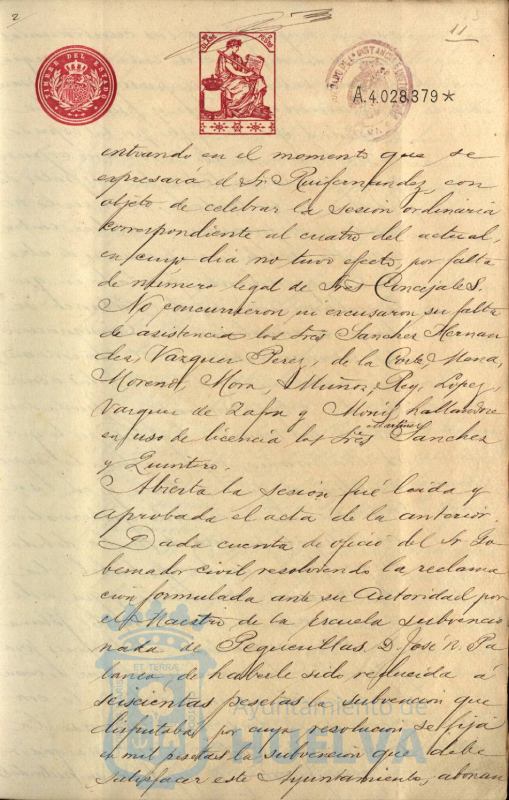 2
11
TIMBRE DEL ESTADO
A.4.028,379*
entrando en el momento que se
expresará el Sr. Ruifernandez, con
objeto de celebrar la sesion ordinaria
correspondiente al cuatro del actual,
en cuyo dia no tuvo efecto, por falta
de número legal de Sres Concejales.
No concurrieron ni excusaron su falta
de asistencia los Sres Sanchez Hernan
dez, Vazquez Perez, de la Corte, Mena,
Moreno, Mora, Muñoz, Rey, Lopez,
Vazquez de Zafra y Moni, hallandose
en uso de licencia los Sres Martinez Sanchez
y Quintero.
Abierta la sesion fué leida y
aprobada el acta de la anterior.
Dada cuenta de oficio del Sr Go
bernador civil, resolviendo la reclama
cion formulada ante su Autoridad por
el Maestro de la Escuela subvencio
nada de Peguerillas D. José R. Pa
lanco, de haberle sido reducida á
seiscientas pesetas la subvencion que
disfrutaba, por cuya resolucion se fija
en mil pesetas la subvencion que debe
satisfacer este Ayuntamiento, abonan
ET TERRAE
Ayuntamiento de
HUELVA